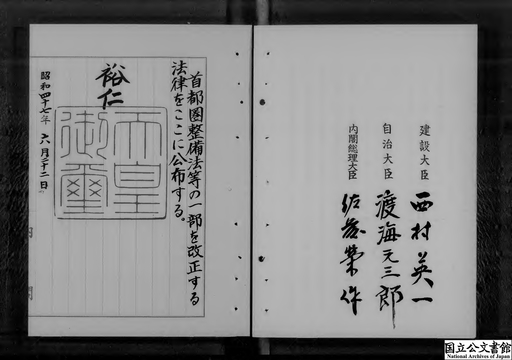 首都圏整備法等の一部を改正する
法律をここに公布する。
裕仁
天皇
御璽
昭和四十七年 六月二十二日
内閣
建設大臣 西村英一
自治大臣 渡海元三郎
内閣総理大臣 佐藤榮作
国立公文書館
National Archives of Japan